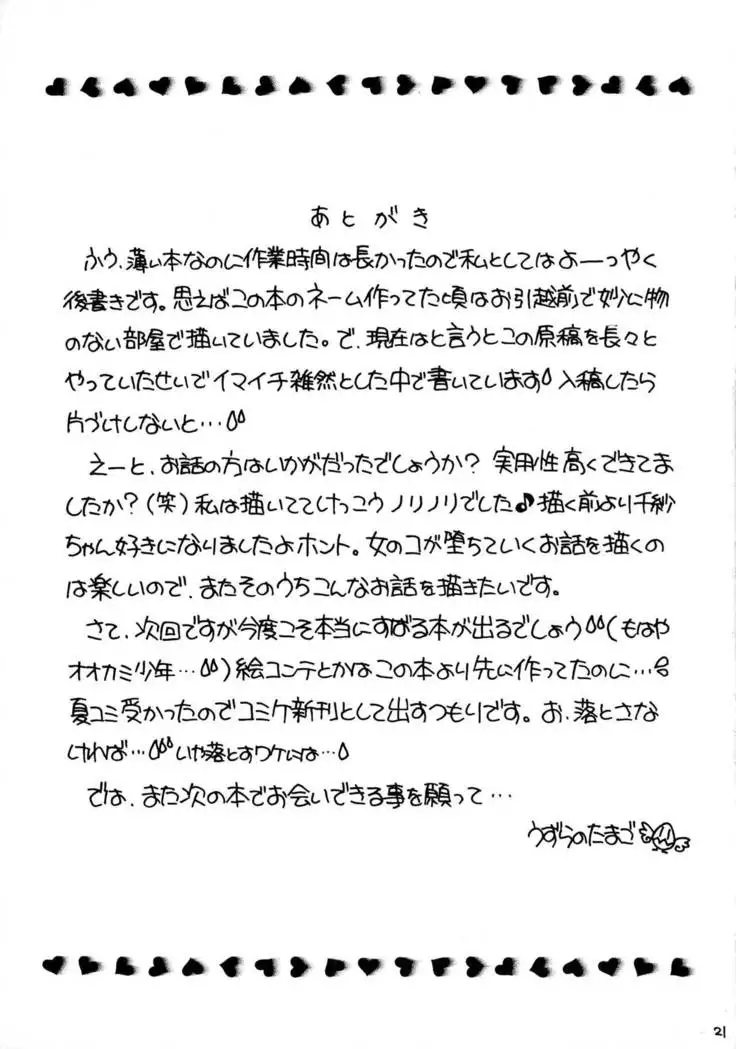 あとがき
ふう、薄い本なのに作業時間は長かったので私としてはよーっやく
後書きです。思えばこの本のネーム作ってた頃はお引越前で妙に物
のない部屋で描いていました。で、現在はと言うとこの原稿を長々と
やっていたせいでイマイチ雑然とした中で書いています 入稿したら
片づけしないと…
えーと、お話の方はいかがだったでしょうか？ 実用性高くできてま
したか？（笑）私は描いててけっこうノリノリでした♪描く前より千紗
ちゃん好きになりましたよホント。女のコが堕ちていくお話を描くの
は楽しいので、またそのうちこんなお話を描きたいです。
さて、次回ですが今度こそ本当にすばる本が出るでしょう（もはや
オオカミ少年…）絵コンテとかはこの本より先に作ってたのに…
夏コミ受かったのでコミケ新刊として出すつもりです。お、落とさな
ければ…いや落とすワケには…
では、また次の本でお会いできる事を願って…
うずらのたまご
21